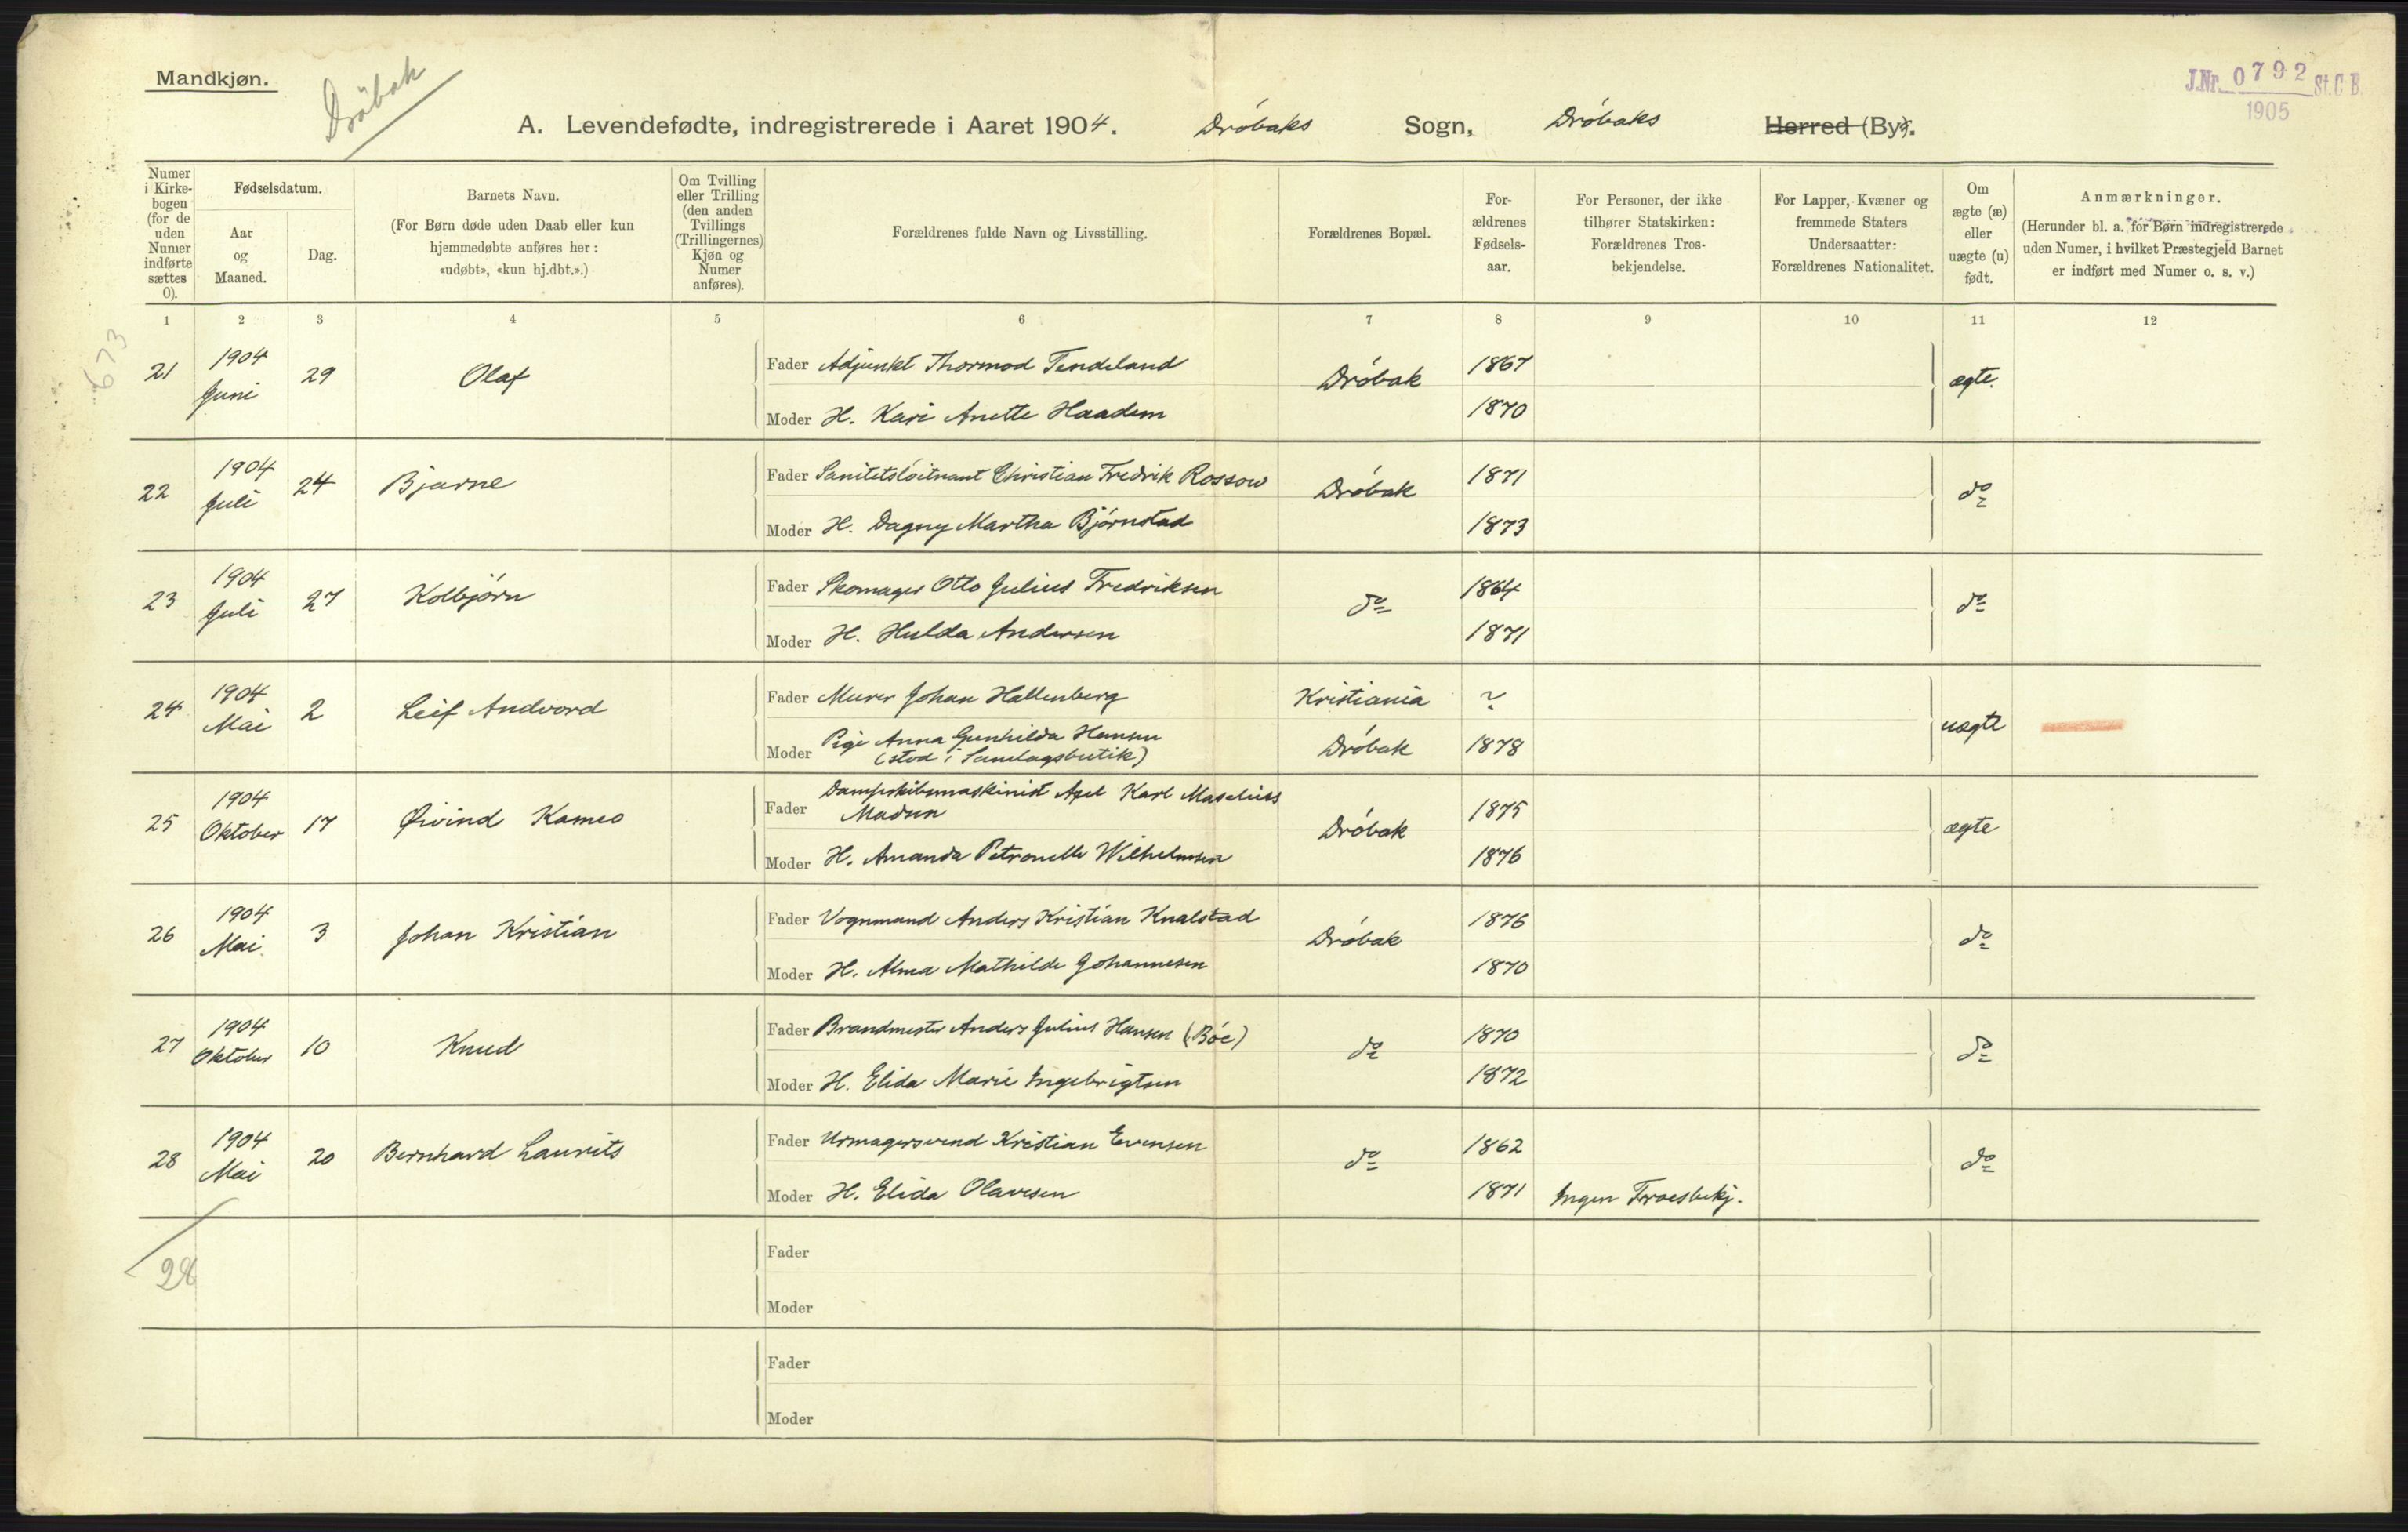 Mandkjøn.
Drøbak
J.Nr. 0792 St.C.B.
1905
A. Levendefødte, indregistrerede i Aaret 1904. Drøbaks Sogn, Drøbaks Herred (By).
Numer i Kirkebogen (for de uden Numer indførte sættes 0).
Fødselsdatum.
Aar og Maaned.
Dag.
Barnets Navn.
(For Børn døde uden Daab eller kun hjemmedøbte anføres her: «udøbt», «kun hj.dbt.».)
Om Tvilling eller Trilling (den anden Tvillings (Trillingernes) Kjøn og Numer anføres).
Forældrenes fulde Navn og Livsstilling.
Forældrenes Bopæl.
Forældrenes Fødselsaar.
For Personer, der ikke tilhører Statskirken: Forældrenes Trosbekjendelse.
For Lapper, Kvæner og fremmede Staters Undersaatter: Forældrenes Nationalitet.
Om ægte (æ) eller uægte (u) født.
Anmærkninger.
(Herunder bl. a. for Børn indregistrerede uden Numer, i hvilket Præstegjeld Barnet er indført med Numer o. s. v.)
1 2 3 4 5 6 7 8 9 10 11 12
673
21 1904 Juni 29 Olaf
Fader Adjunkt Thormod Tendeland Drøbak 1867 ægte.
Moder H. Kari Anette Haadem 1870
22 1904 Juli 24 Bjarne
Fader Sanitetsløitnant Christian Fredrik Rossow Drøbak 1871 do
Moder H. Dagny Martha Bjørnstad 1873
23 1904 Juli 27 Kolbjørn
Fader Skomager Otto Julius Fredriksen do 1864 do
Moder H. Hulda Andersen 1871
24 1904 Mai 2 Leif Andvord
Fader Murer Johan Hallenberg Kristiania ? uægte
Moder Pige Anna Gunhilda Hansen Drøbak 1878
(stod i Samlagsbutik)
25 1904 Oktober 17 Øivind Kameo
Fader Dampskibsmaskinist Axel Karl Maselius
Madsen Drøbak 1875 ægte
Moder H. Amanda Petronelle Wilhelmsen 1876
26 1904 Mai. 3 Johan Kristian
Fader Vognmand Anders Kristian Knalstad Drøbak 1876 do
Moder H. Alma Mathilde Johannesen 1870
27 1904 Oktober 10 Knud
Fader Brandmester Anders Julius Hansen (Bøe) do 1870 do
Moder H. Elida Marie Ingebrigtsen 1872
28 1904 Mai 20 Bernhard Laurits
Fader Urmagersvend Kristian Evensen do 1862 do
Moder H. Elida Olavesen 1871 Ingen Troesbekj.
28
Fader
Moder
Fader
Moder